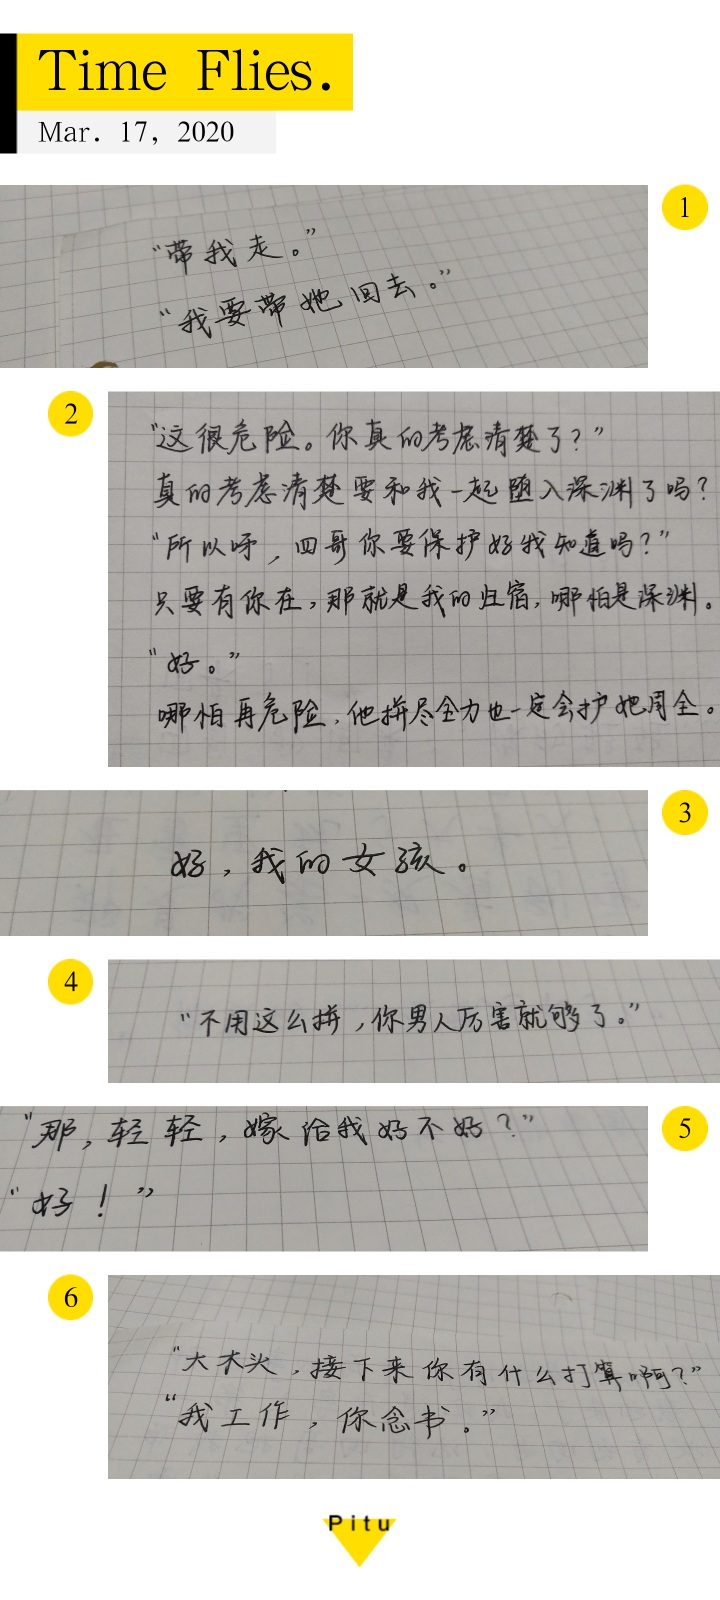 Time Flies.
Mar. 17, 2020
1
“带我走。”
“我要带她回去。”
2
“这很危险。你真的考虑清楚了？”
真的考虑清楚要和我一起堕入深渊了吗？
“所以呀，四哥你要保护好我知道吗？”
只要有你在，那就是我的归宿，哪怕是深渊。
“好。”
哪怕再危险，他拼尽全力也一定会护她周全。
3
好，我的女孩。
4
“不用这么拼，你男人厉害就够了。”
5
“那，轻轻，嫁给我好不好？”
“好！”
6
“大木头，接下来你有什么打算啊？”
“我工作，你念书。”
Pitu